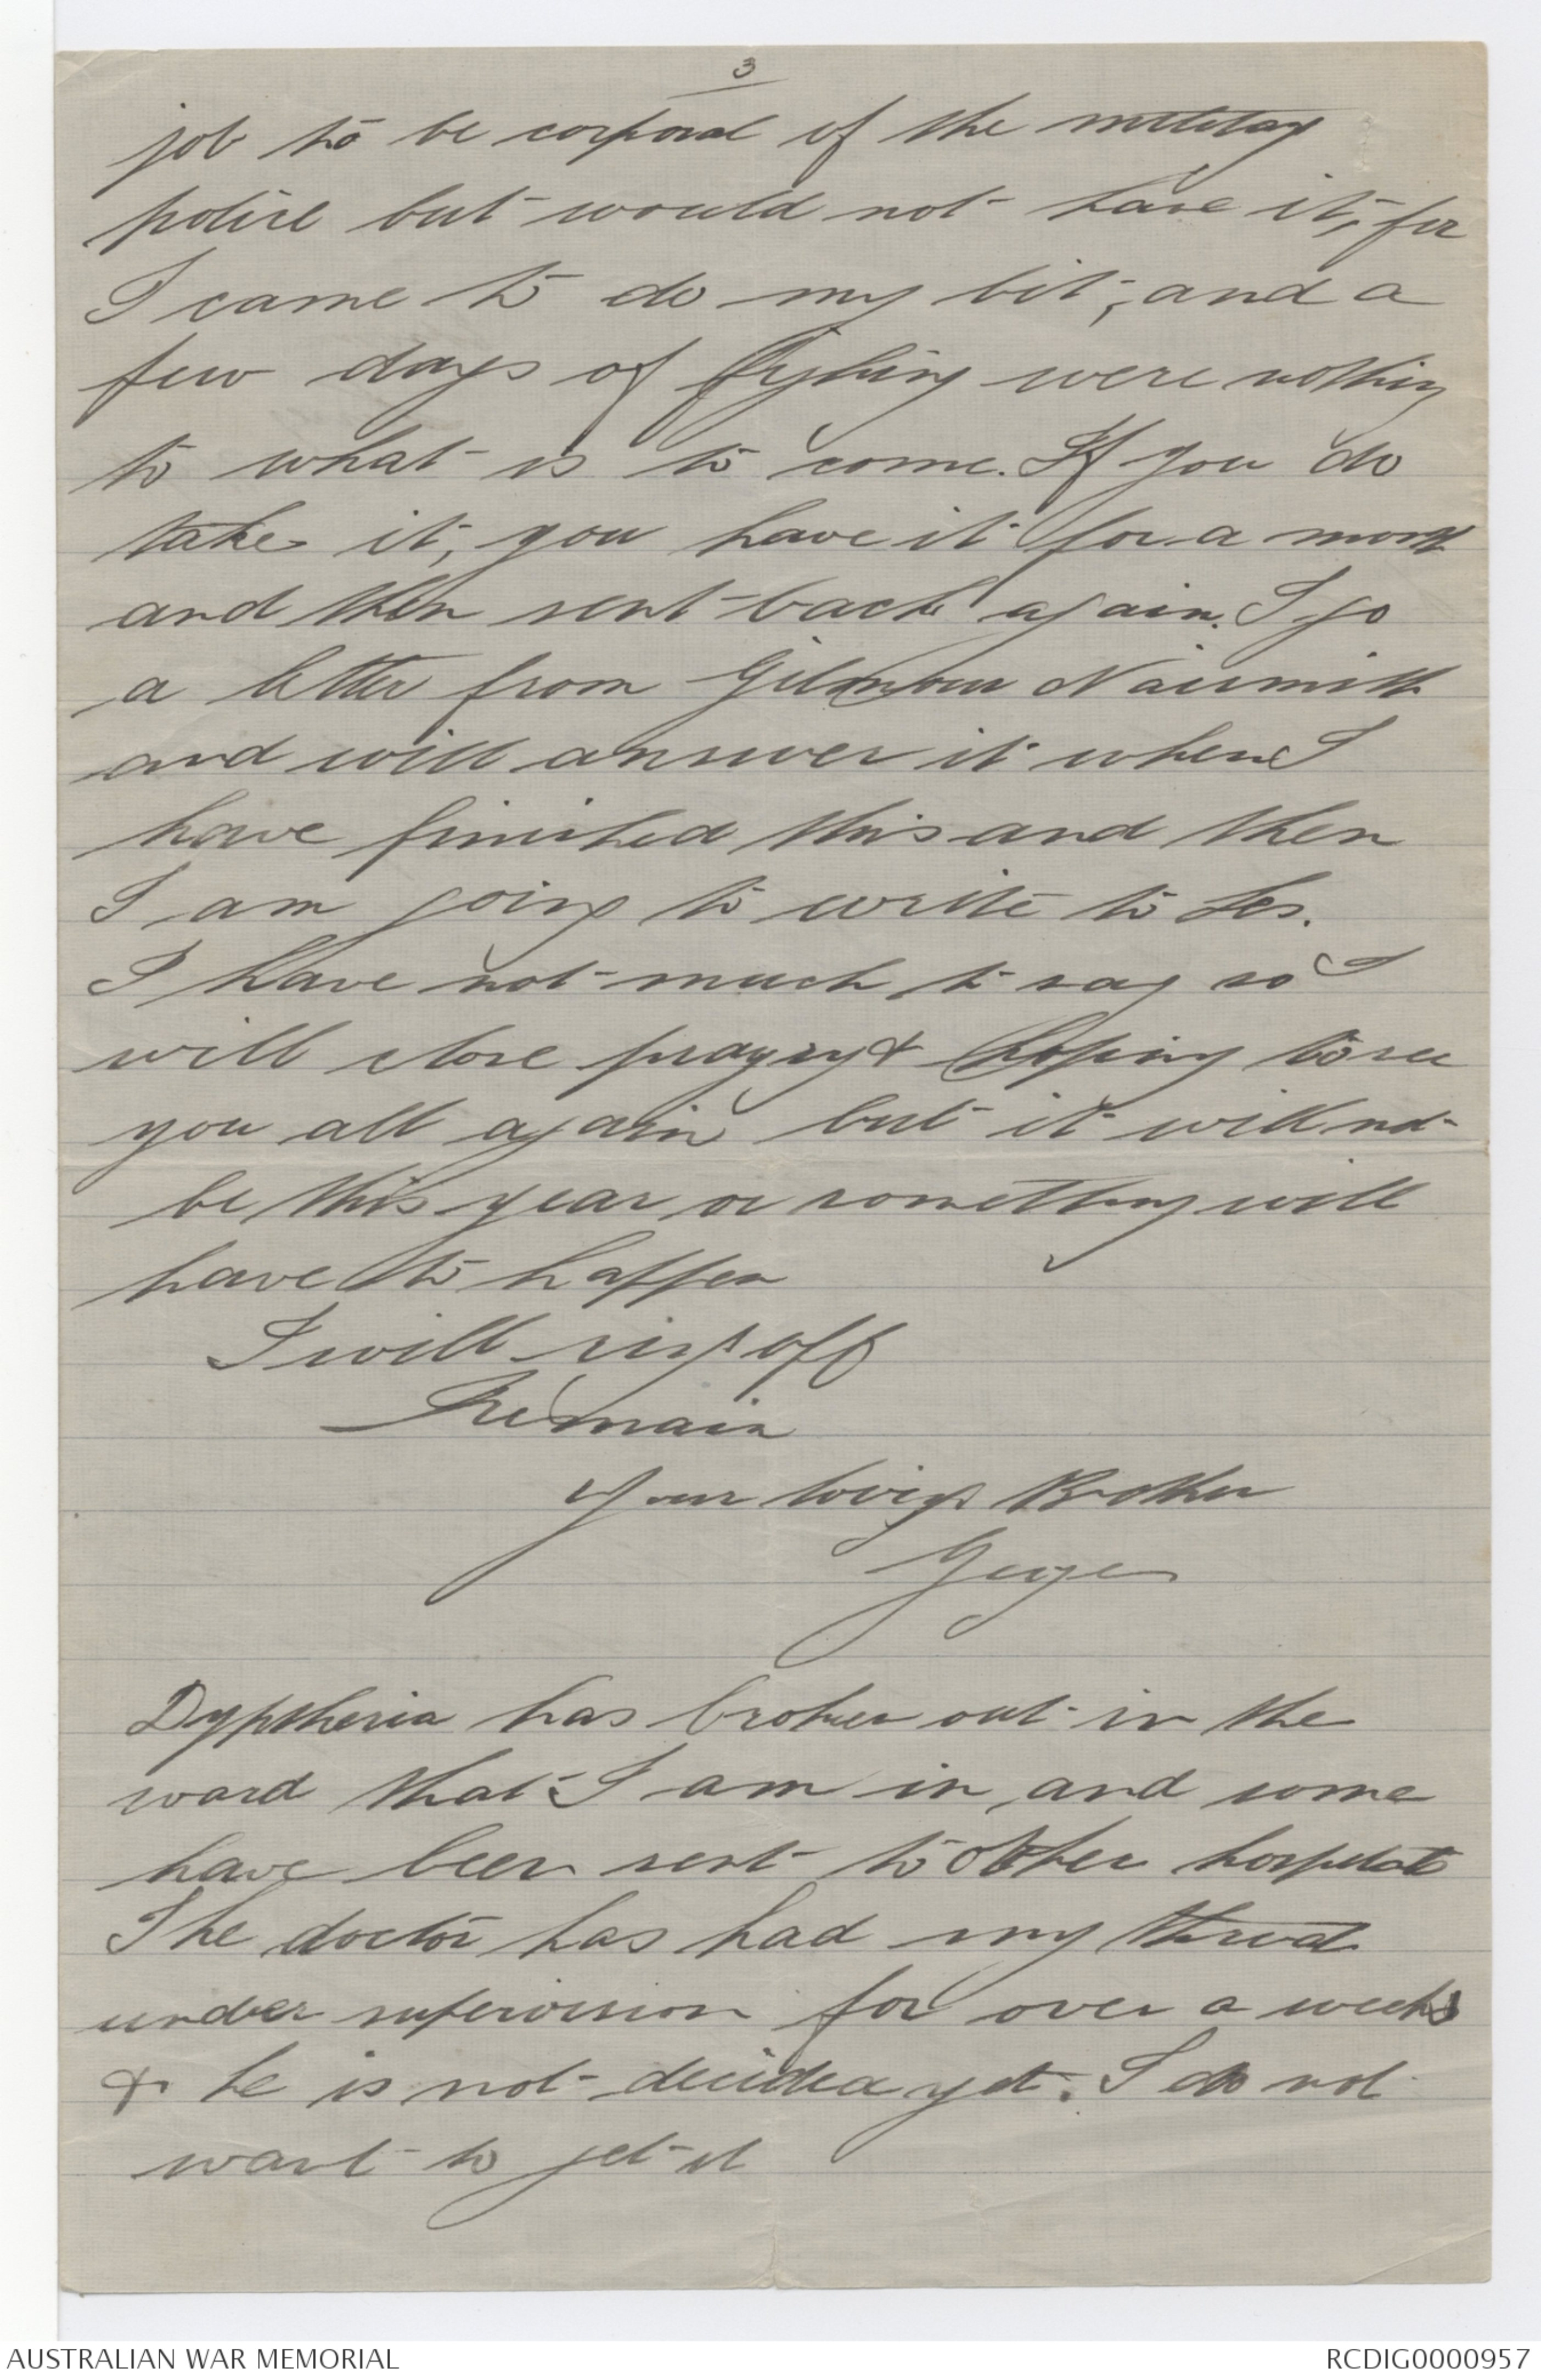 3
job to be corporal of the military
police but would not have it, for
I came to do my bit, and a
few days of fighting were nothing
to what is to come. If you do
take it, you have it for a month
and then sent back again. I go
a letter from Gilmour Naismith
and will answer it when I
have finished this and then
I am going to write to Les.
I have not much to say so I
will close prayng & hoping to see
you all again but it will not
be this year or something will
have to happen
I will ring off
Remain
Your loving Brother
George
Dyptheria has broken out in the
ward that I am in, and some
have been sent to other hospitals
The doctor has had my throat
under supervision for over a week
& he is not decided yet. I do not
want to get it
AUSTRALIAN WAR MEMORIAL
RCDIG0000957